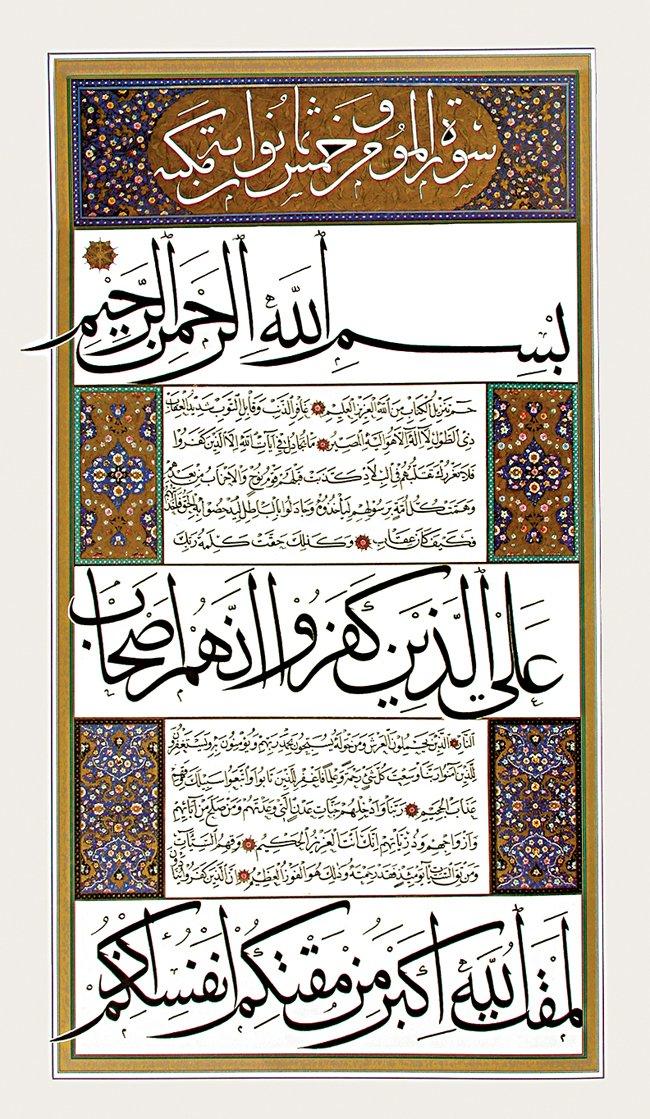 سورة المؤمن خمس و ثمانون آية مكية
بِسْمِ اللَّهِ الرَّحْمَنِ الرَّحِيمِ
حم تنزيل الكتاب من الله العزيز العليم غافر الذنب وقابل التوب شديد العقاب
ذي الطول لا اله الا هو اليه المصير ما يجادل في آيات الله الا الذين كفروا
فلا يغررك تقلبهم في البلاد كذبت قبلهم قوم نوح والاحزاب من بعدهم
وهمت كل امة برسولهم ليأخذوه وجادلوا بالباطل ليدحضوا به الحق فأخذتهم
فكيف كان عقاب وكذلك حقت كلمة ربك
عَلَى الَّذِينَ كَفَرُوا أَنَّهُمْ أَصْحَابُ
النار الذين يحملون العرش ومن حوله يسبحون بحمد ربهم ويؤمنون به ويستغفرون
للذين آمنوا ربنا وسعت كل شيء رحمة وعلما فاغفر للذين تابوا واتبعوا سبيلك وقهم
عذاب الجحيم ربنا وادخلهم جنات عدن التي وعدتهم ومن صلح من آبائهم
وازواجهم وذرياتهم انك انت العزيز الحكيم وقهم السيئات
ومن تق السيئات يومئذ فقد رحمته وذلك هو الفوز العظيم ان الذين كفروا ينادون
لَمَقْتُ اللَّهِ أَكْبَرُ مِنْ مَقْتِكُمْ أَنْفُسَكُمْ إِذْ